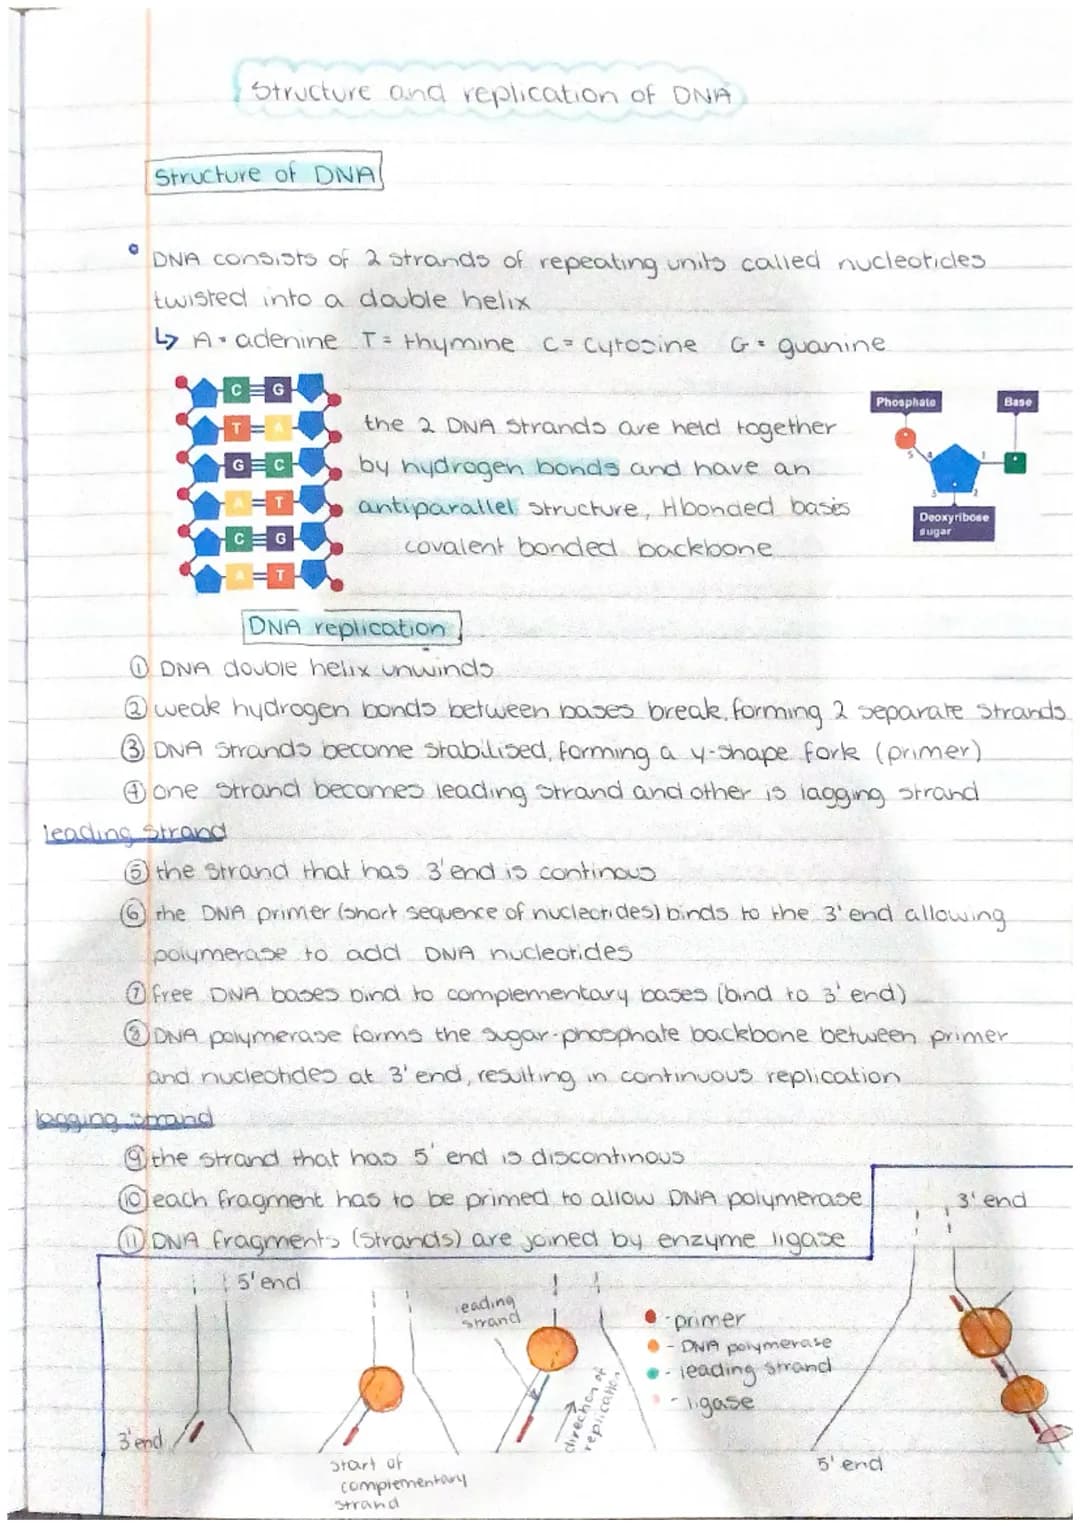 Structure and replication of DNA
Structure of DNA
DNA consists of 2 strands of repeating units called nucleotides
twisted into a double helix
↳ A = adenine T = thymine C = cytosine G = guanine
C G
T A
G C
A T
C G
A T
the 2 DNA strands are held together
by hydrogen bonds and have an
antiparallel structure, H bonded bases
covalent bonded backbone
Phosphate
Base
5 4 1
3 2
Deoxyribose
sugar
DNA replication
① DNA double helix unwinds
② weak hydrogen bonds between bases break, forming 2 separate strands
③ DNA strands become stabilised, forming a y-shape fork (primer)
④ one strand becomes leading strand and other is lagging strand
leading strand
⑤ the strand that has 3' end is continous
⑥ the DNA primer (short sequence of nucleotides) binds to the 3' end allowing
polymerase to add DNA nucleotides
⑦ free DNA bases bind to complementary bases (bind to 3' end)
⑧ DNA polymerase forms the sugar-phosphate backbone between primer
and nucleotides at 3' end, resulting in continuous replication
lagging strand
⑨ the strand that has 5' end is discontinous
⑩ each fragment has to be primed to allow DNA polymerase
⑪ DNA fragments (strands) are joined by enzyme ligase
5' end
3' end
start of
complementary
strand
leading
strand
direction of
replication
- primer
- DNA polymerase
- leading strand
- ligase
3' end
5' end